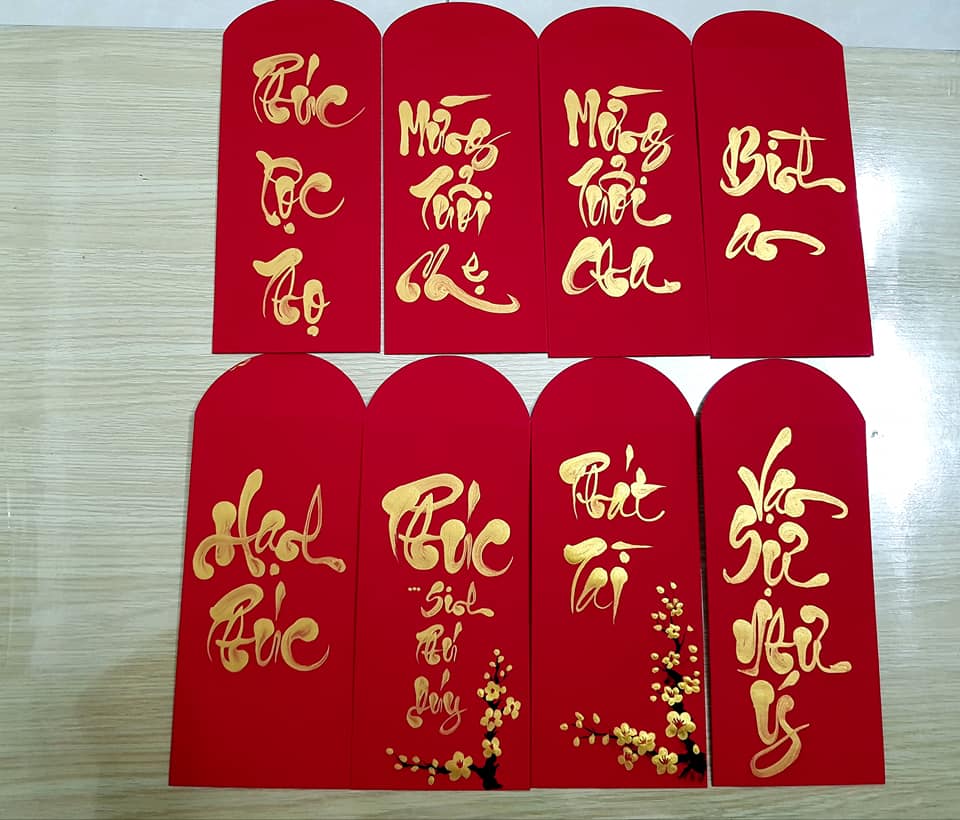 Phúc
Lộc
Thọ
Mừng
Tuổi
Mẹ
Mừng
Tuổi
Cha
Bình
an
Hạnh
Phúc
Phúc
...Sinh
Phú
Quý
Phát
Tài
Vạn
Sự
Như
Ý